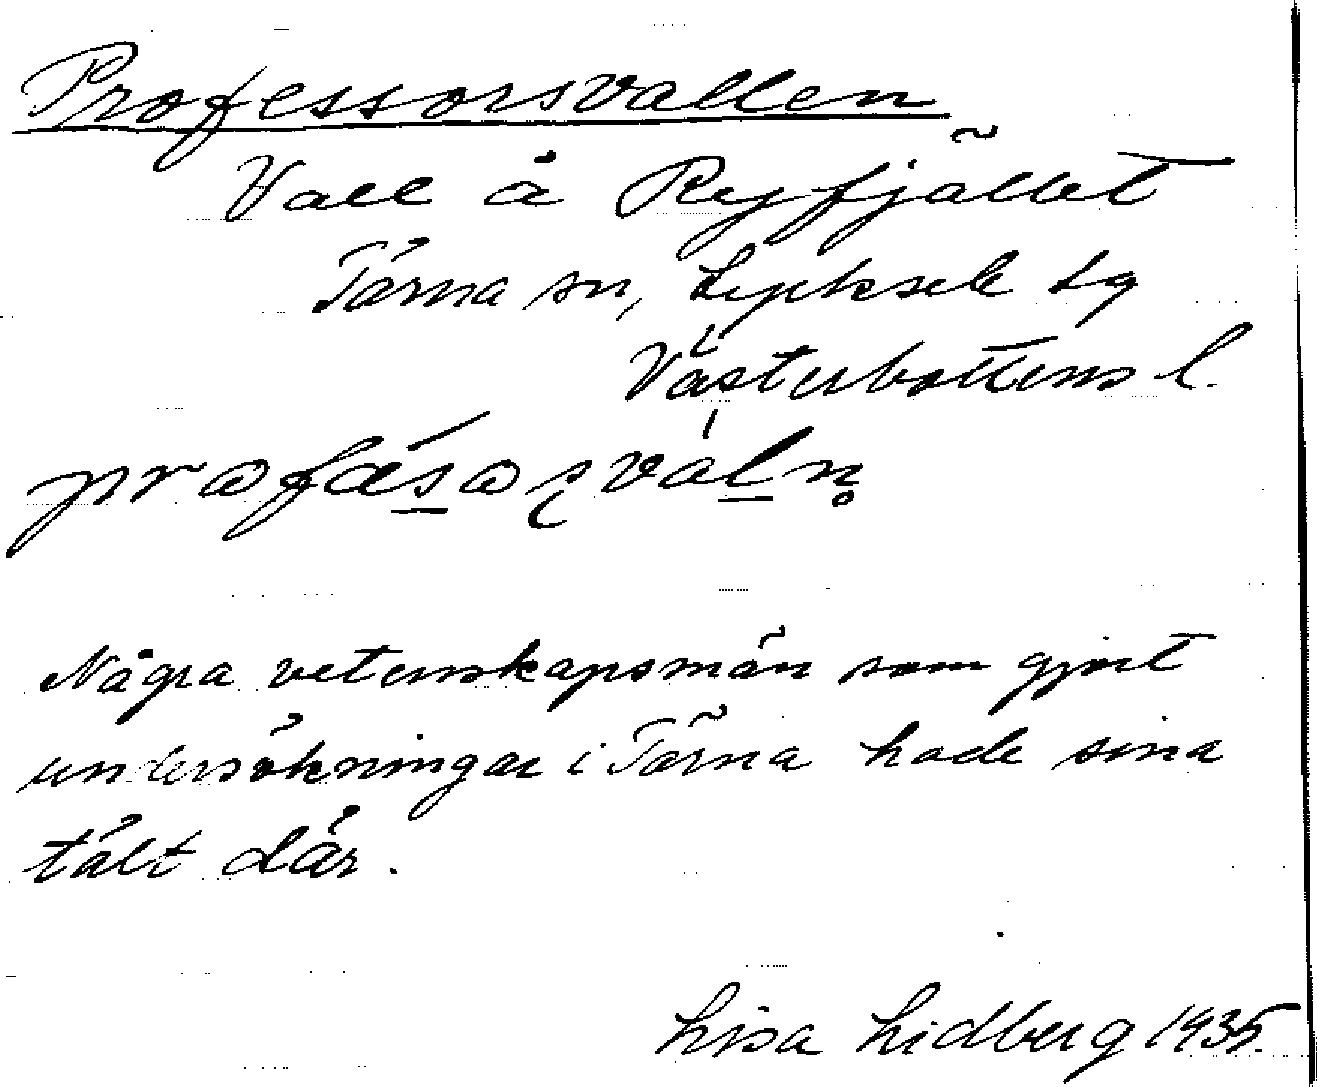 Professorsvallen
Vall å Ryfjället
Tärna sn, Lycksele lg
Västerbottens l.
Några vetenskapsmän som gjort
undersökningar i Tärna hade sina
tält där.
Lisa Lidberg 1935.